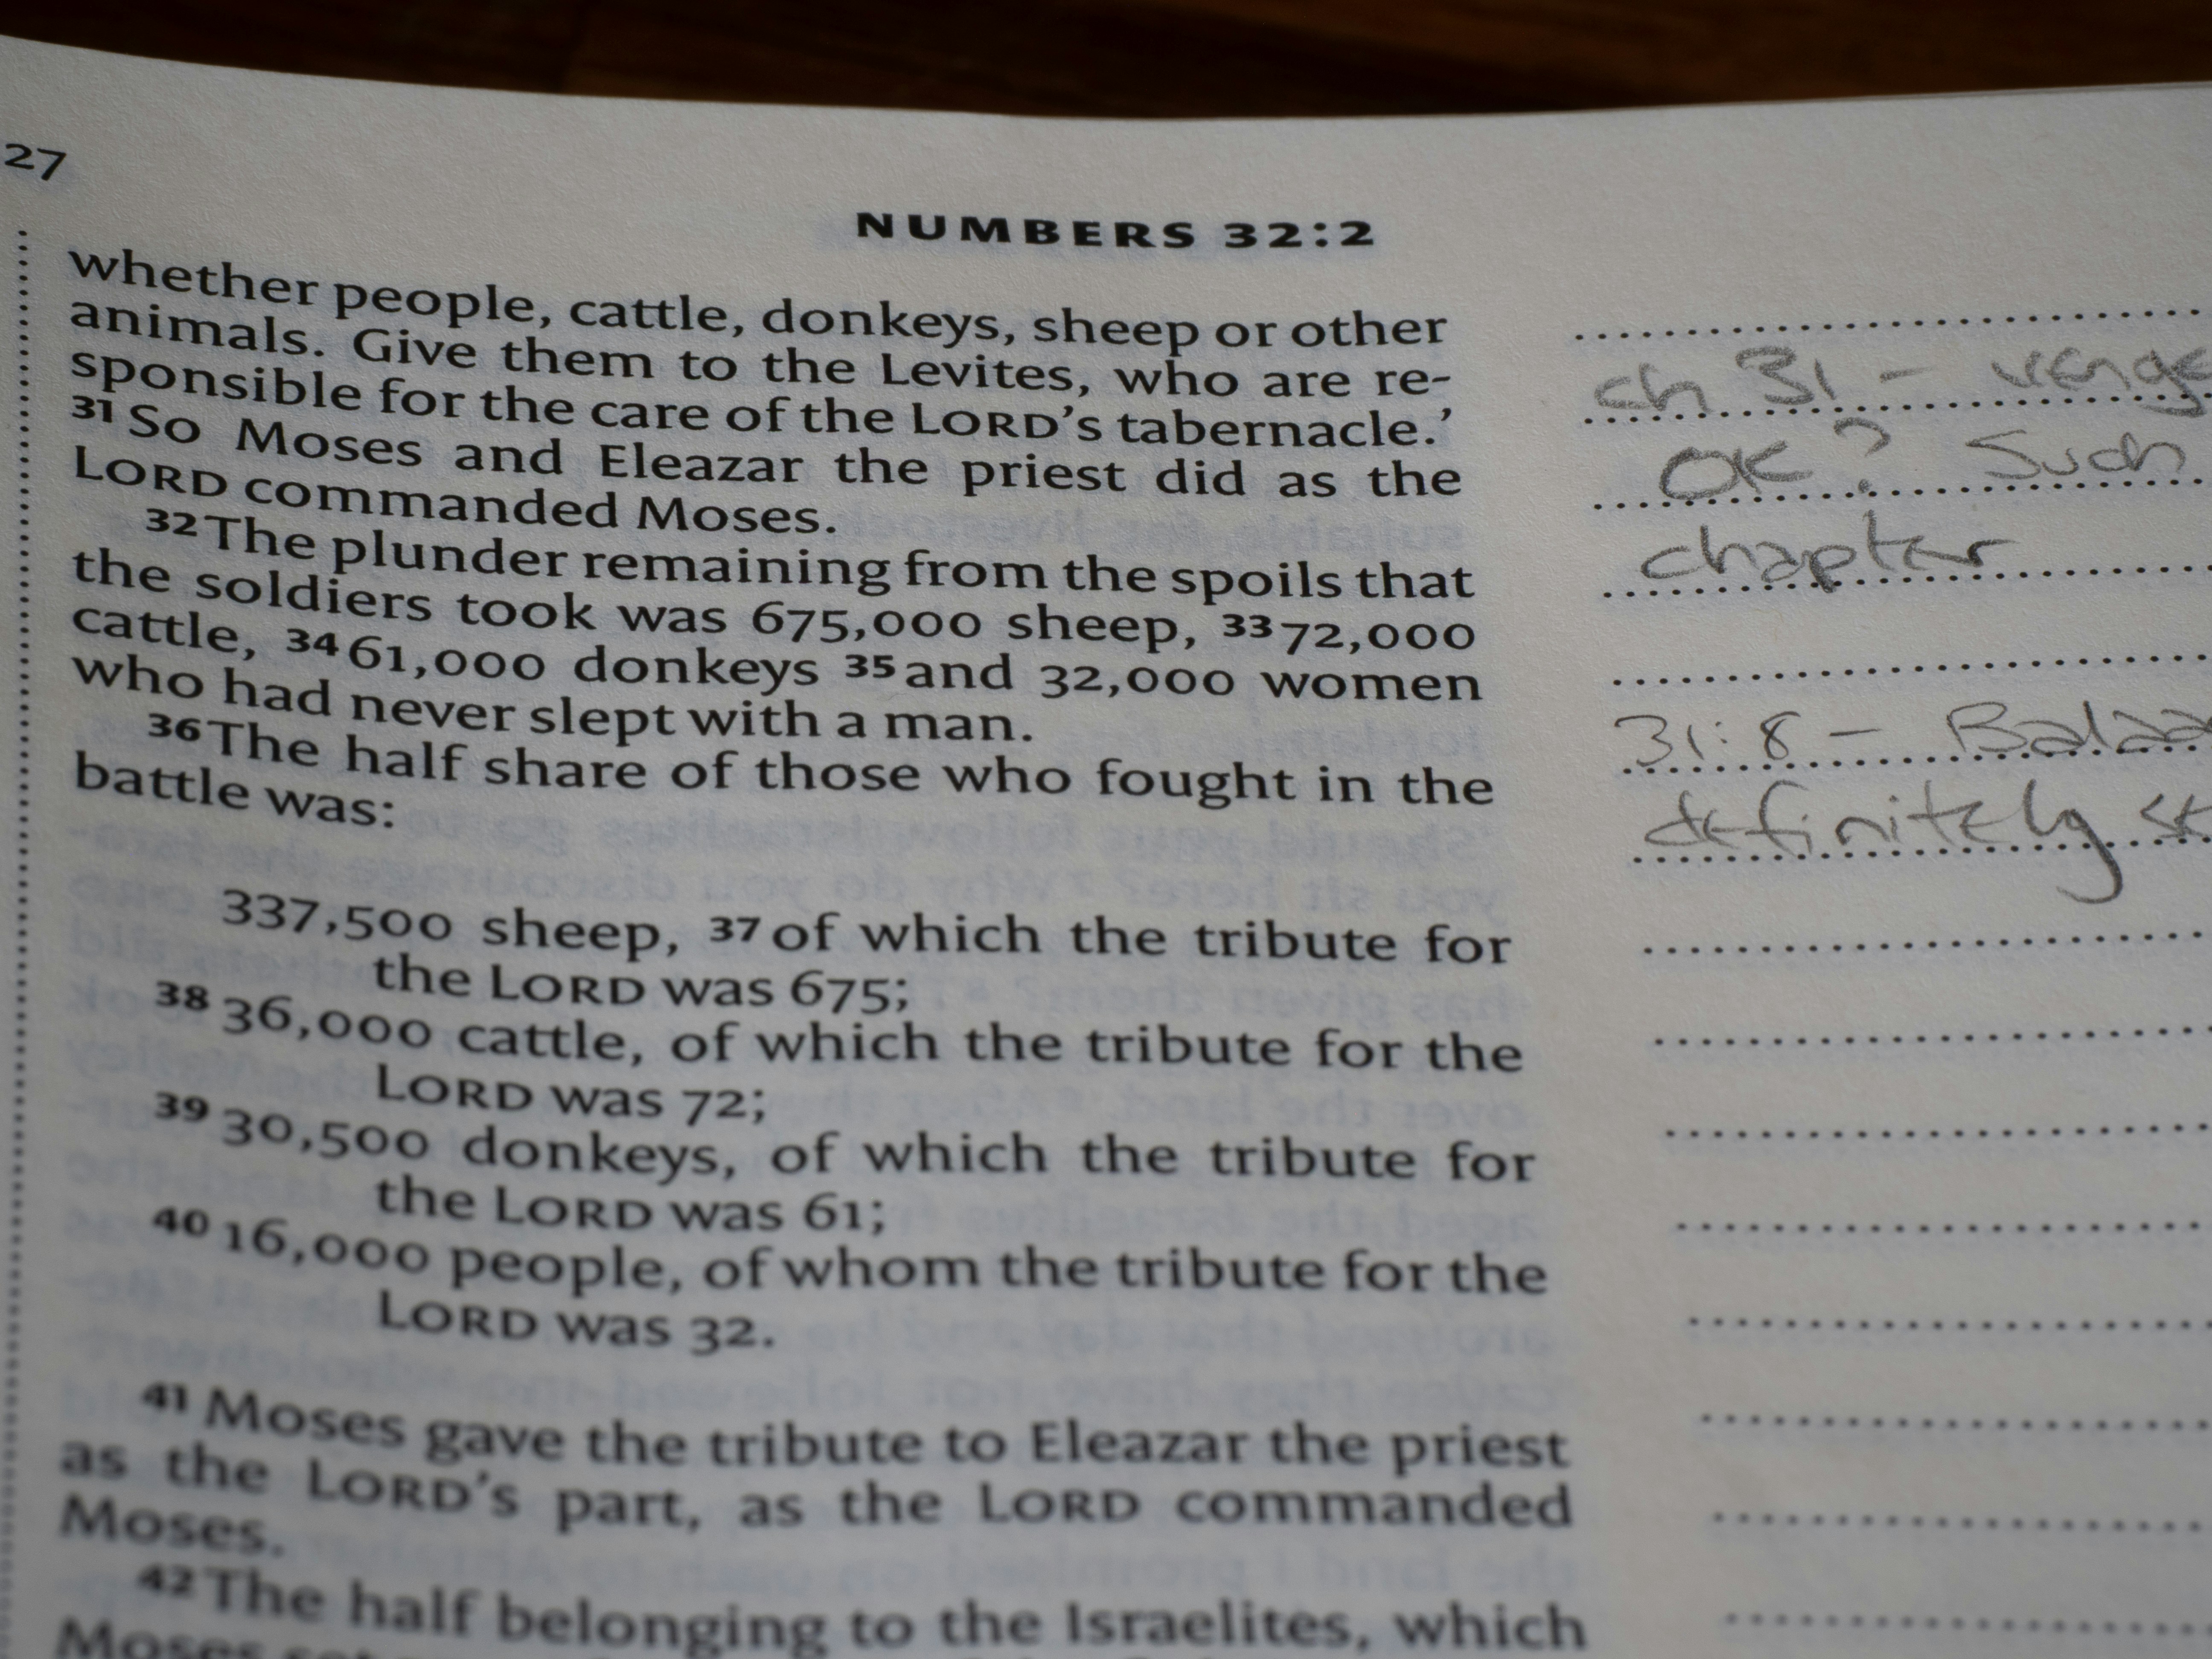 27
NUMBERS 32:2
whether people, cattle, donkeys, sheep or other
animals. Give them to the Levites, who are re-
sponsible for the care of the LORD’s tabernacle.’
31 So Moses and Eleazar the priest did as the
LORD commanded Moses.
32 The plunder remaining from the spoils that
the soldiers took was 675,000 sheep, 33 72,000
cattle, 34 61,000 donkeys 35 and 32,000 women
who had never slept with a man.
36 The half share of those who fought in the
battle was:
337,500 sheep, 37 of which the tribute for
the LORD was 675;
38 36,000 cattle, of which the tribute for the
LORD was 72;
39 30,500 donkeys, of which the tribute for
the LORD was 61;
40 16,000 people, of whom the tribute for the
LORD was 32.
41 Moses gave the tribute to Eleazar the priest
as the LORD’s part, as the LORD commanded
Moses.
42 The half belonging to the Israelites, which
Moses
ch 31 – venge
OK? Such
chapter
31:8 – Balaa
definitely